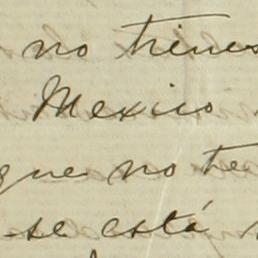 no tienes
Mexico
que no te
se está